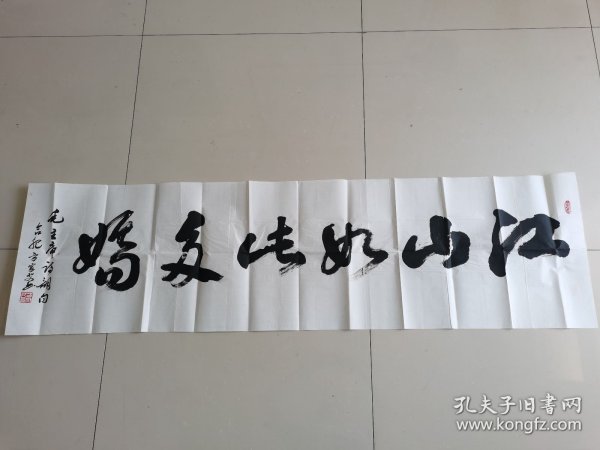 江山如此多娇
毛主席诗词句
孔夫子旧书网
www.kongfz.com